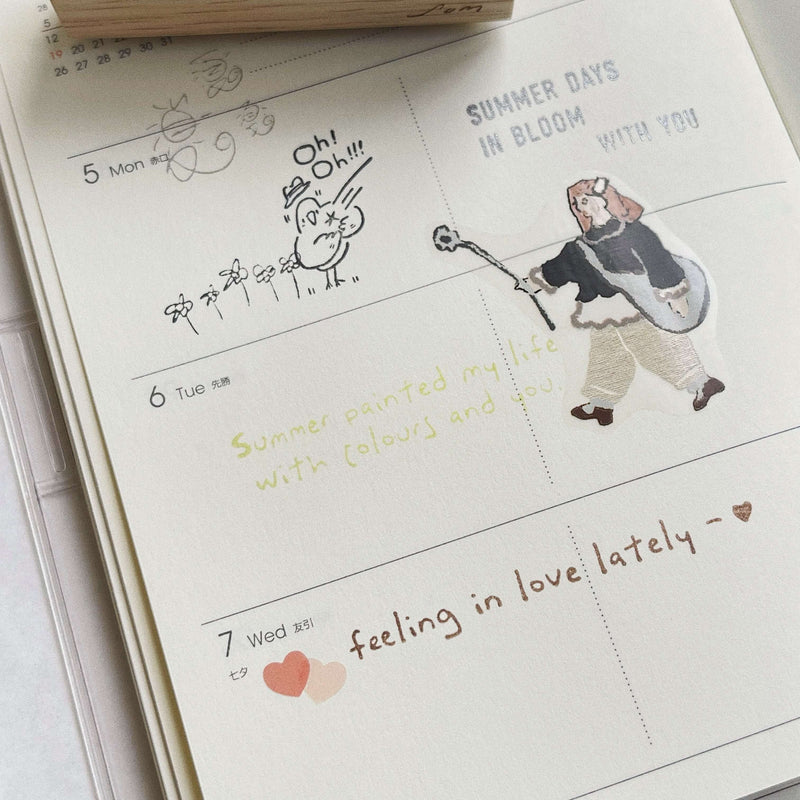 28
5
12
19 20 21
26 27 28 29 30 31
som
SUMMER DAYS
IN BLOOM
WITH YOU
5 Mon 赤口
Oh!
Oh!!!
6 Tue 先勝
Summer painted my life
with colours and you.
7 Wed 友引
七夕
feeling in love lately ~